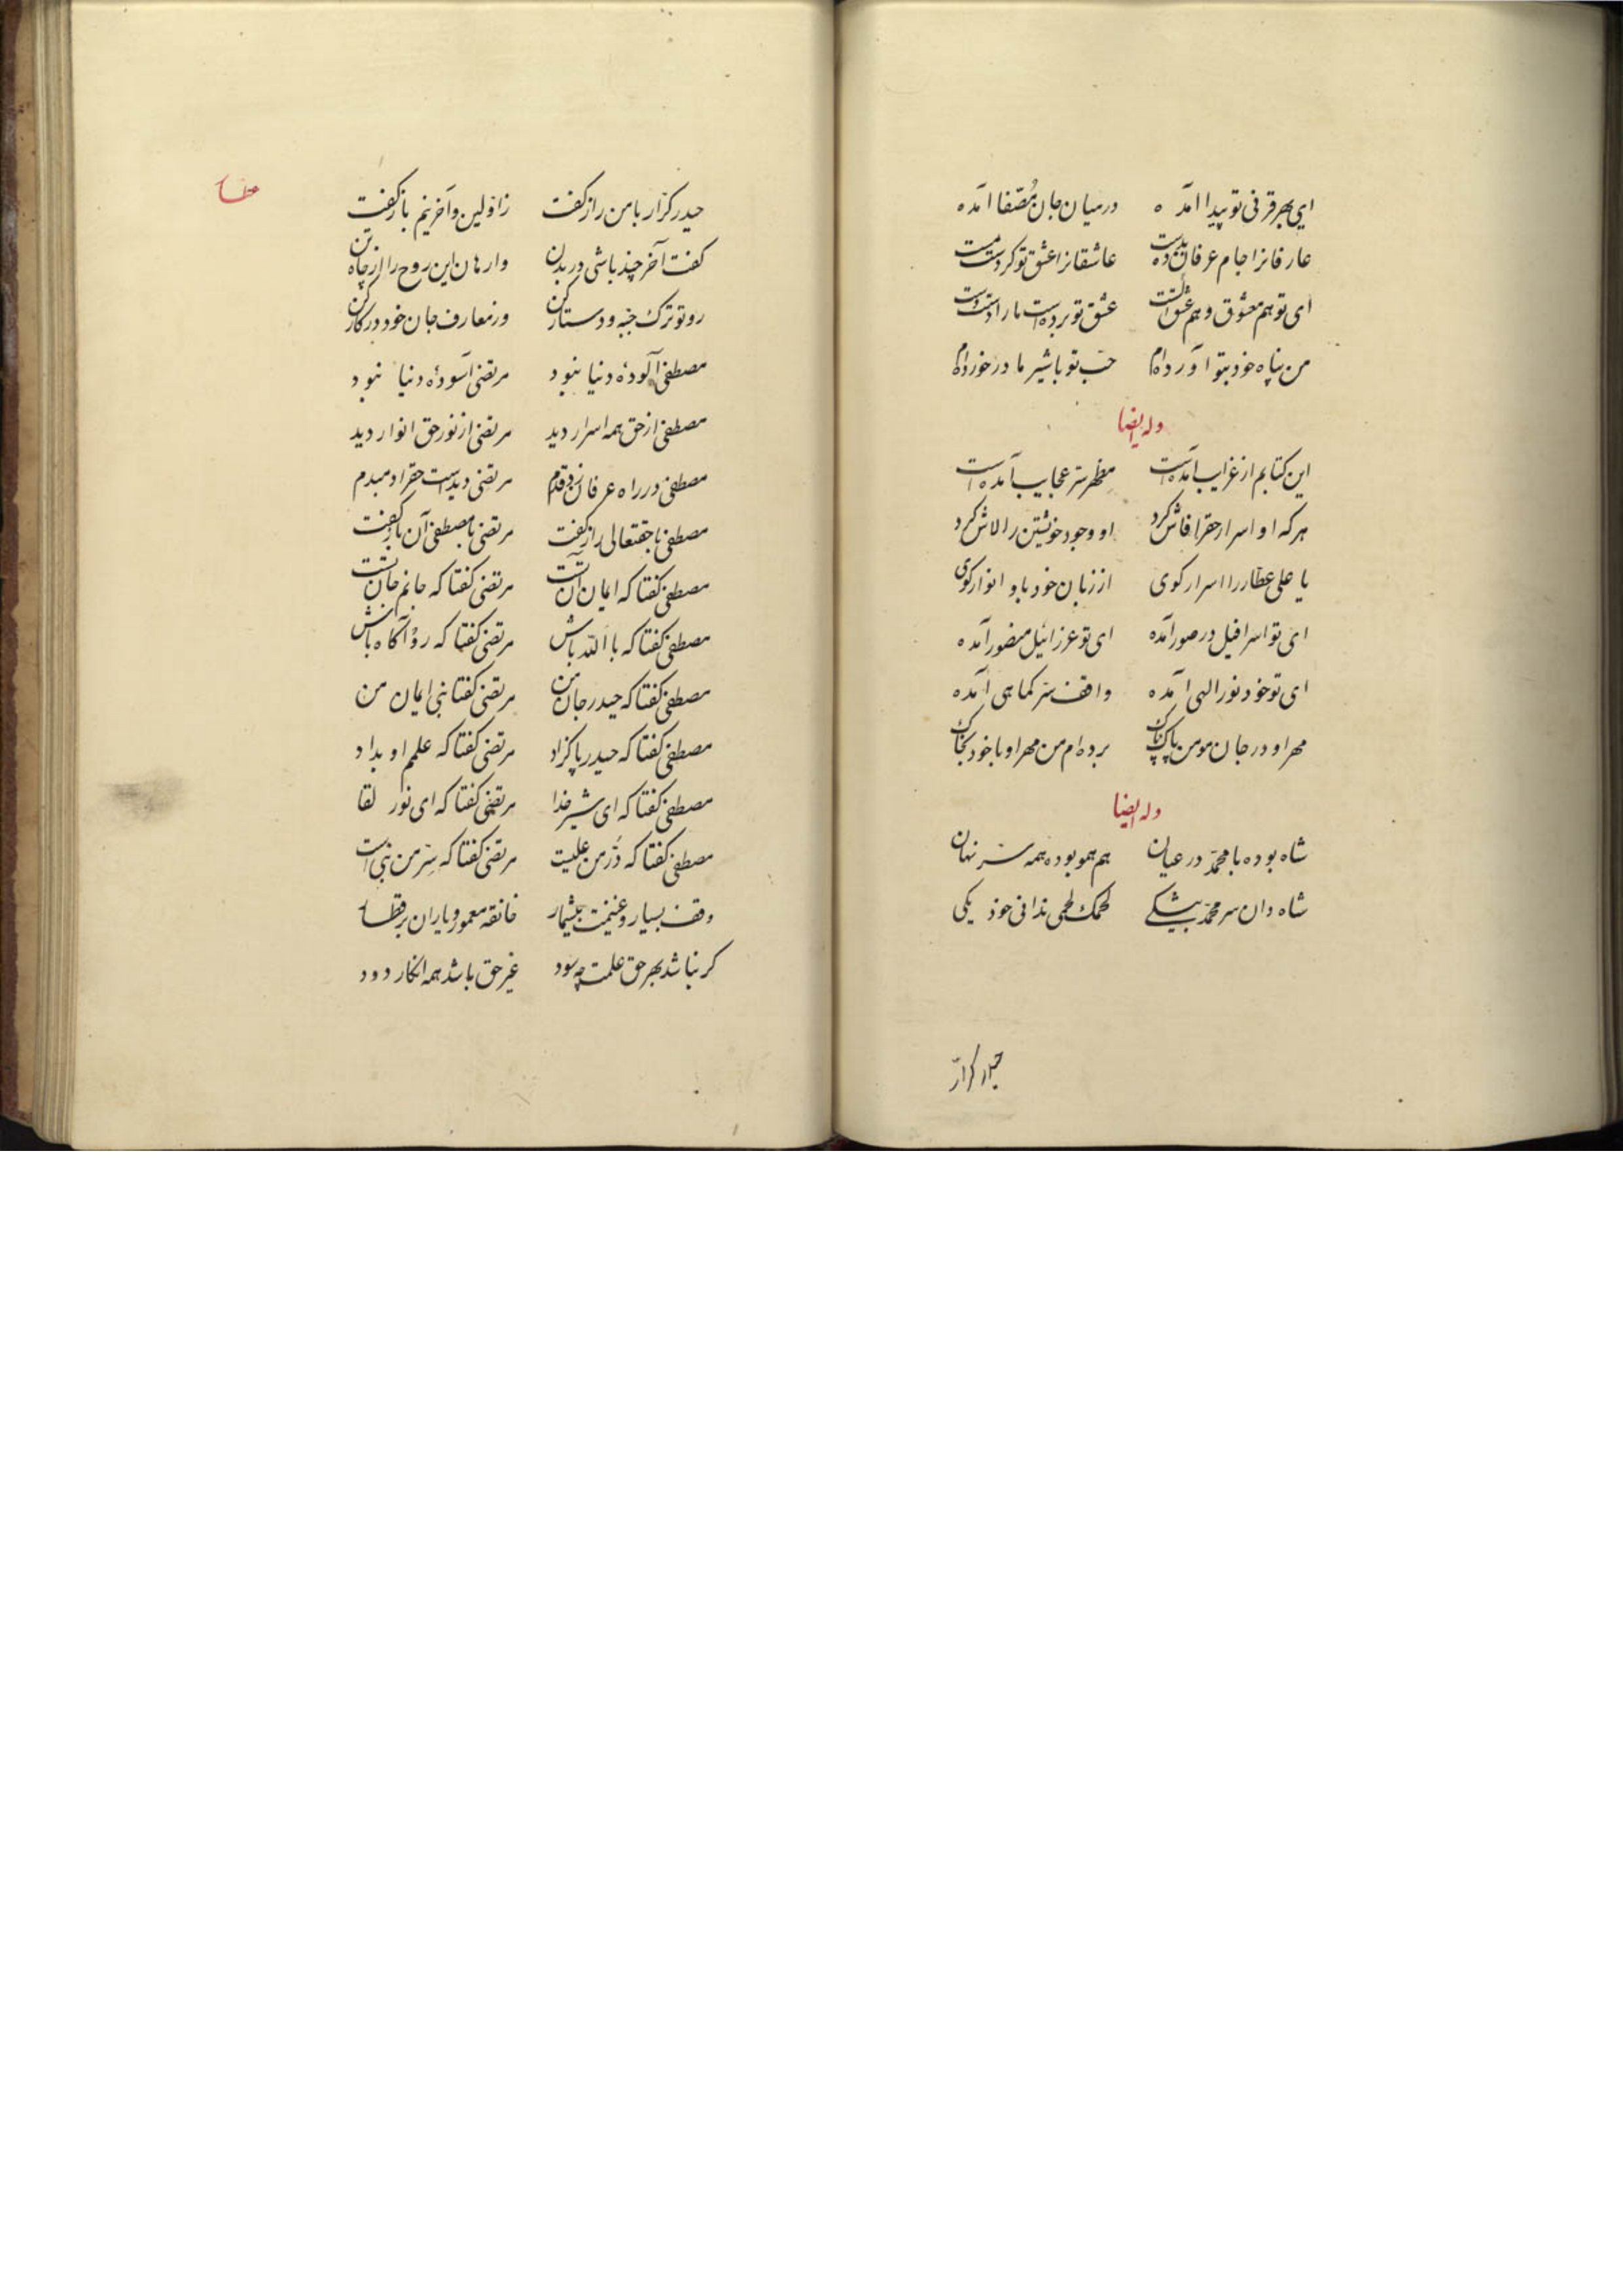 ای بهر قرنی تو پیدا آمده درمیان جان مصفا آمده
عارفانرا جام عرفان داده دست عاشقانرا عشق تو کردست مست
ای تو هم معشوق و هم عشق الست عشق تو برده است ما را دست
من پناه خود بتو آورده‌ام حب تو باشیر مادر خورده‌ام
وله ایضا
این کتابم از غرایب آمده است مظهر سر عجایب آمده است
هرکه او اسرار حقرا فاش کرد او وجود خویشتن را لاش کرد
یا علی عطار را اسرار کوی از زبان خود باو انوار کوی
ای تو اسرافیل در صور آمده ای تو عزرائیل منصور آمده
ای تو خود نور الهی آمده واقف سر کماهی آمده
مهر او در جان مومن پاک برده‌ام من مهر او با خود بخاک
وله ایضا
شاه بوده با محمد در عیان هم همو بوده همه سر نهان
شاه دان سر محمد بیشکے لحمک لحمی ندانی خود یکی
حیدر کرار
عطار
حیدر کرار با من راز کفت زاولین و آخرینم باز کفت
کفت آخر چند باشی در بدن وارهان این روح را از چاه تن
رو تو ترک جبه و دستار کن ورمعارف جان خود در کار کن
مصطفی آلودهٔ دنیا نبود مرتضی آسودهٔ دنیا نبود
مصطفی از حق همه اسرار دید مرتضی از نور حق انوار دید
مصطفی در راه عرفان زد قدم مرتضی دیدست حقرا دمبدم
مصطفی با حقتعالی راز کفت مرتضی با مصطفی آن باز کفت
مصطفی کفتا که ایمان آن تست مرتضی کفتا که جانم جان تست
مصطفی کفتا که با الله باش مرتضی کفتا که رو آکاه باش
مصطفی کفتا که حیدر جان من مرتضی کفتا نبی ایمان من
مصطفی کفتا که حیدر پاکزاد مرتضی کفتا که علمم او بداد
مصطفی کفتا که ای شیر خدا مرتضی کفتا که ای نور لقا
مصطفی کفتا که در من علیست مرتضی کفتا که سر من نبی است
وقف بسیار و غنیمت بیشمار خانقه معمور و یاران برقطار
کر نباشد بهر حق علمت چه سود غیر حق باشد همه انکار دود